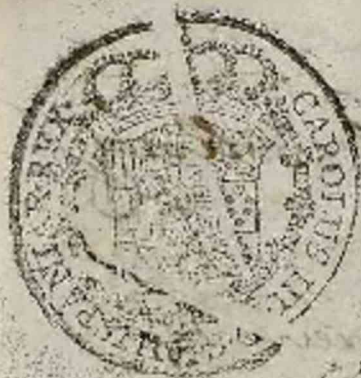 CAROLUS III
HISPANIAR. REX.